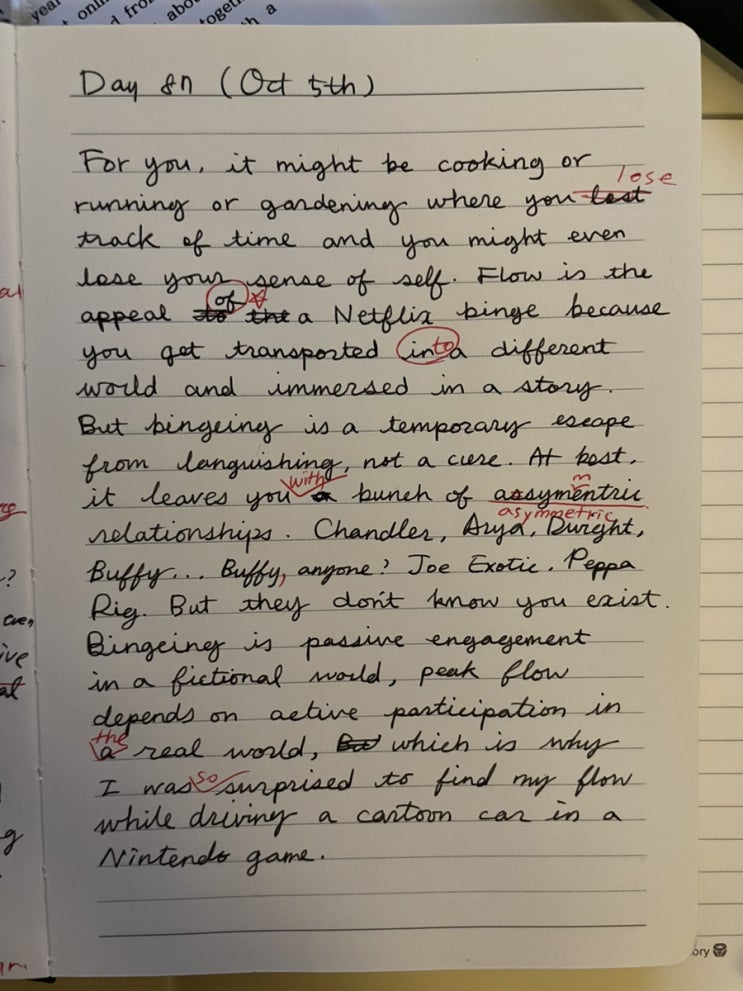 year
onli
d from
abou
togeth
h a
Day 87 (Oct 5th)
For you, it might be cooking or
lose
running or gardening where you lost
track of time and you might even
lose your sense of self. Flow is the
of
appeal to the a Netflix binge because
you get transported into a different
world and immersed in a story.
But bingeing is a temporary escape
from languishing, not a cure. At best,
with m
it leaves you a bunch of assymentric
asymmetric
relationships. Chandler, Arya, Dwight,
Buffy... Buffy, anyone? Joe Exotic. Peppa
Rig. But they don't know you exist.
Bingeing is passive engagement
in a fictional world, peak flow
depends on active participation in
the
a real world, But which is why
so
I was surprised to find my flow
while driving a cartoon car in a
Nintendo game.
al
?
ive
at
g
ory